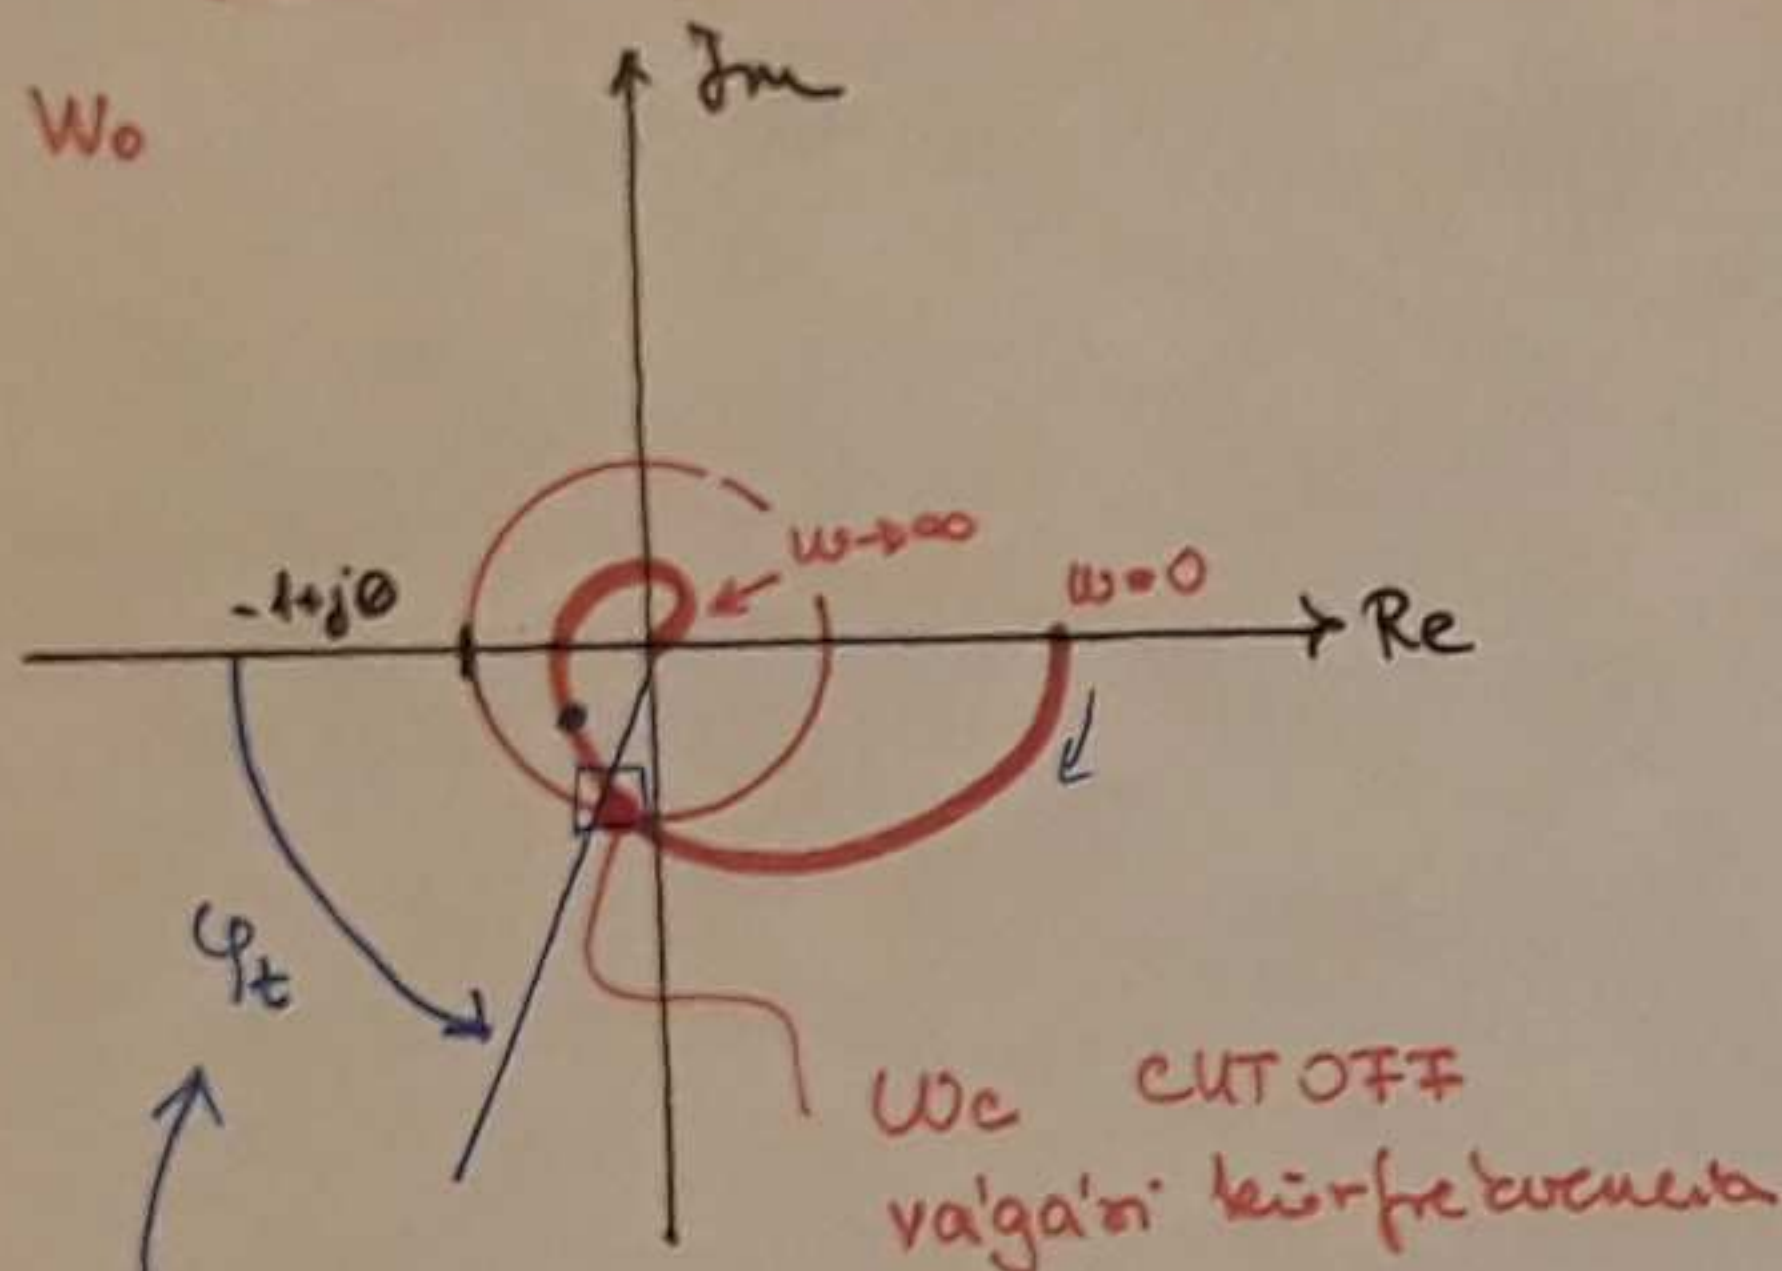 Im
W₀
ω→∞
ω=0
-1+j0
Re
φt
ωc CUT OFF
vágási körfrekvencia